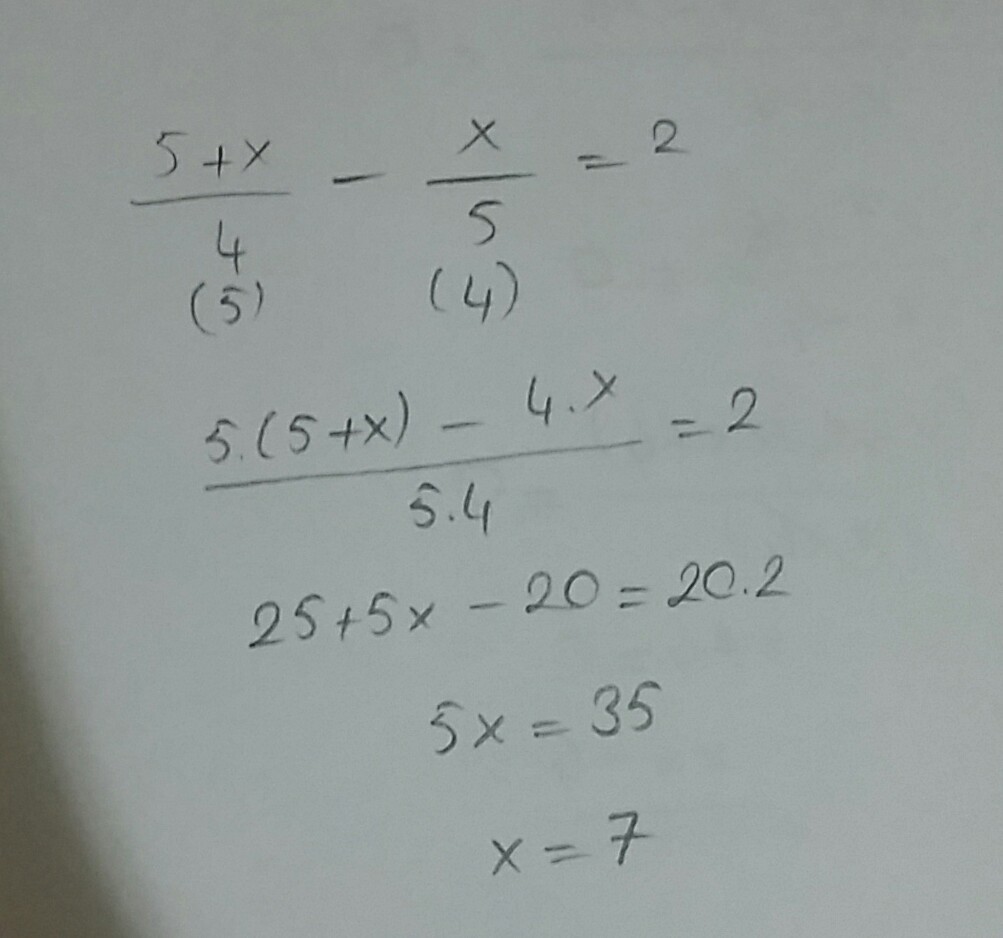 5+x/4 - x/5 = 2
(5) (4)
5.(5+x) - 4.x/5.4 = 2
25+5x - 20 = 20.2
5x = 35
x = 7